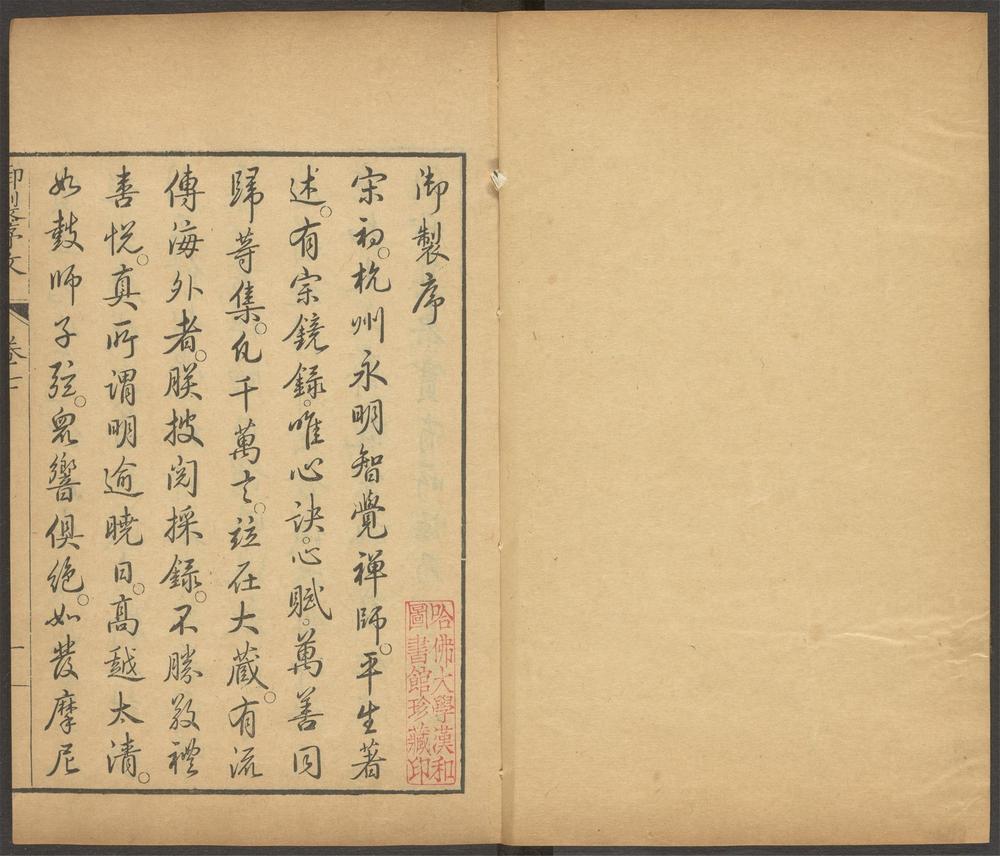 御製序
宋初。杭州永明智覺禪師。平生著
述。有宗鏡錄。唯心訣。心賦。萬善同
歸等集。凡千萬言。竝在大藏。有流
傳海外者。朕披閱採錄。不勝敬禮
善悅。真所謂明逾曉日。高越太清。
如鼓師子弦。衆響俱絶。如發摩尼
序文
卷十
一
哈佛大學漢和
圖書館珍藏印